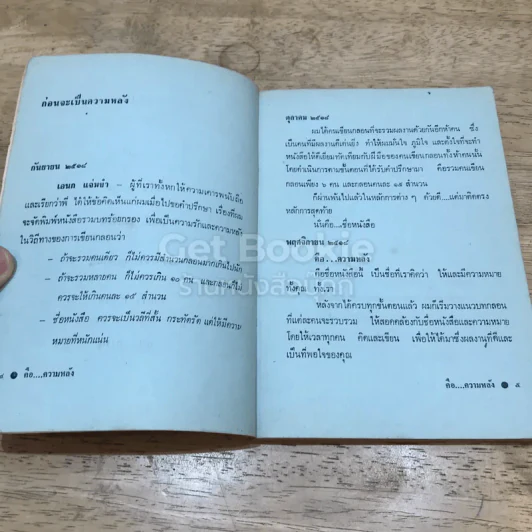 ก่อนจะเป็นความหลัง
กันยายน ๒๕๑๘
เอนก แจ่มขำ – ผู้ที่เราทั้งหกให้ความเคารพนับถือ
และเรียกว่าพี่ ได้ให้ข้อคิดเห็นแก่ผมเมื่อไปขอคำปรึกษา เรื่องที่ผม
จะจัดพิมพ์หนังสือรวมบทร้อยกรอง เพื่อเป็นความรักและความหลัง
ในวิถีทางของการเขียนกลอนว่า
– ถ้าจะรวมคนเดียว ก็ไม่ควรมีสำนวนกลอนมากเกินไปนัก
– ถ้าจะรวมหลายคน ก็ไม่ควรเกิน ๑๐ คน และกลอนก็ไม่
ควรจะให้เกินคนละ ๑๕ สำนวน
– ชื่อหนังสือ ควรจะเป็นวลีที่สั้น กระทัดรัด แต่ให้มีความ
หมายที่หนักแน่น
๔ ● คือ....ความหลัง
ตุลาคม ๒๕๑๘
ผมได้คนเขียนกลอนที่จะรวมผลงานด้วยกันอีกห้าคน ซึ่ง
เป็นคนที่มีผลงานดีเด่นยิ่ง ทำให้ผมมั่นใจ ภูมิใจ และตั้งใจที่จะทำ
หนังสือให้ดีเยี่ยมทัดเทียมกับฝีมือของคนเขียนกลอนทั้งห้าคนนั้น
โดยดำเนินการตามขั้นตอนที่ได้รับคำปรึกษามา คือรวมคนเขียน
กลอนเพียง ๖ คน และกลอนคนละ ๑๕ สำนวน
ก็ผ่านพ้นไปแล้วในหลักการต่าง ๆ ด้วยดี....แต่มาติดตรง
หลักการสุดท้าย
นั่นคือ....ชื่อหนังสือ
พฤศจิกายน ๒๕๑๘
คือ....ความหลัง
คือชื่อหนังสือนี้ เป็นชื่อที่เราคิดว่า ให้และมีความหมาย
ทั้งคุณ ทั้งเรา
หลังจากได้ครบทุกขั้นตอนแล้ว ผมก็เริ่มวางแนวบทกลอน
ที่แต่ละคนจะรวบรวม ให้สอดคล้องกับชื่อหนังสือและความหมาย
โดยให้เวลาทุกคน คิดและเขียน เพื่อให้ได้มาซึ่งผลงานที่ดีและ
เป็นที่พอใจของคุณ
คือ....ความหลัง ● ๕
Get Bookie
ร้านหนังสือเก่า